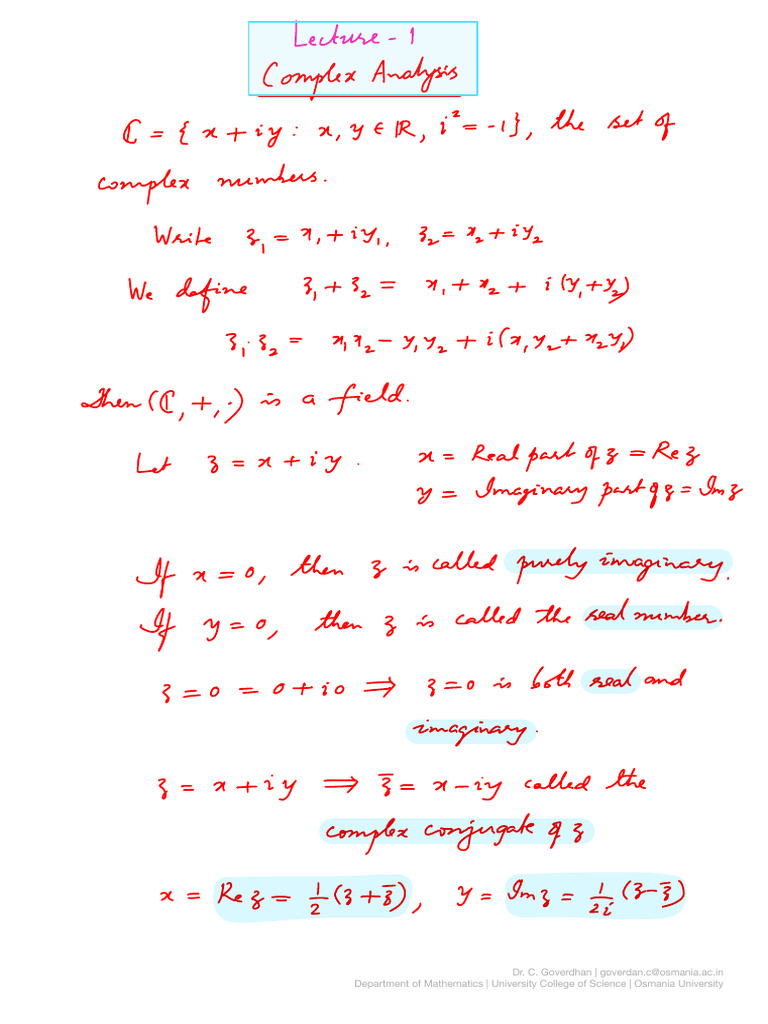 Lecture - 1
Complex Analysis
ℂ = { x + iy : x, y ∈ ℝ, i² = -1}, the set of
complex numbers.
Write z₁ = x₁ + iy₁, z₂ = x₂ + iy₂
We define z₁ + z₂ = x₁ + x₂ + i (y₁ + y₂)
z₁ · z₂ = x₁x₂ - y₁y₂ + i(x₁y₂ + x₂y₁)
Then (ℂ, +, ·) is a field.
Let z = x + iy . x = Real part of z = Re z
y = Imaginary part of z = Im z
If x = 0, then z is called purely imaginary.
If y = 0, then z is called the real number.
z = 0 = 0 + i0 ⟹ z = 0 is both real and
imaginary.
z = x + iy ⟹ z̄ = x - iy called the
complex conjugate of z
x = Re z = 1/2 (z + z̄), y = Im z = 1/2i (z - z̄)
Dr. C. Goverdhan | goverdan.c@osmania.ac.in
Department of Mathematics | University College of Science | Osmania University